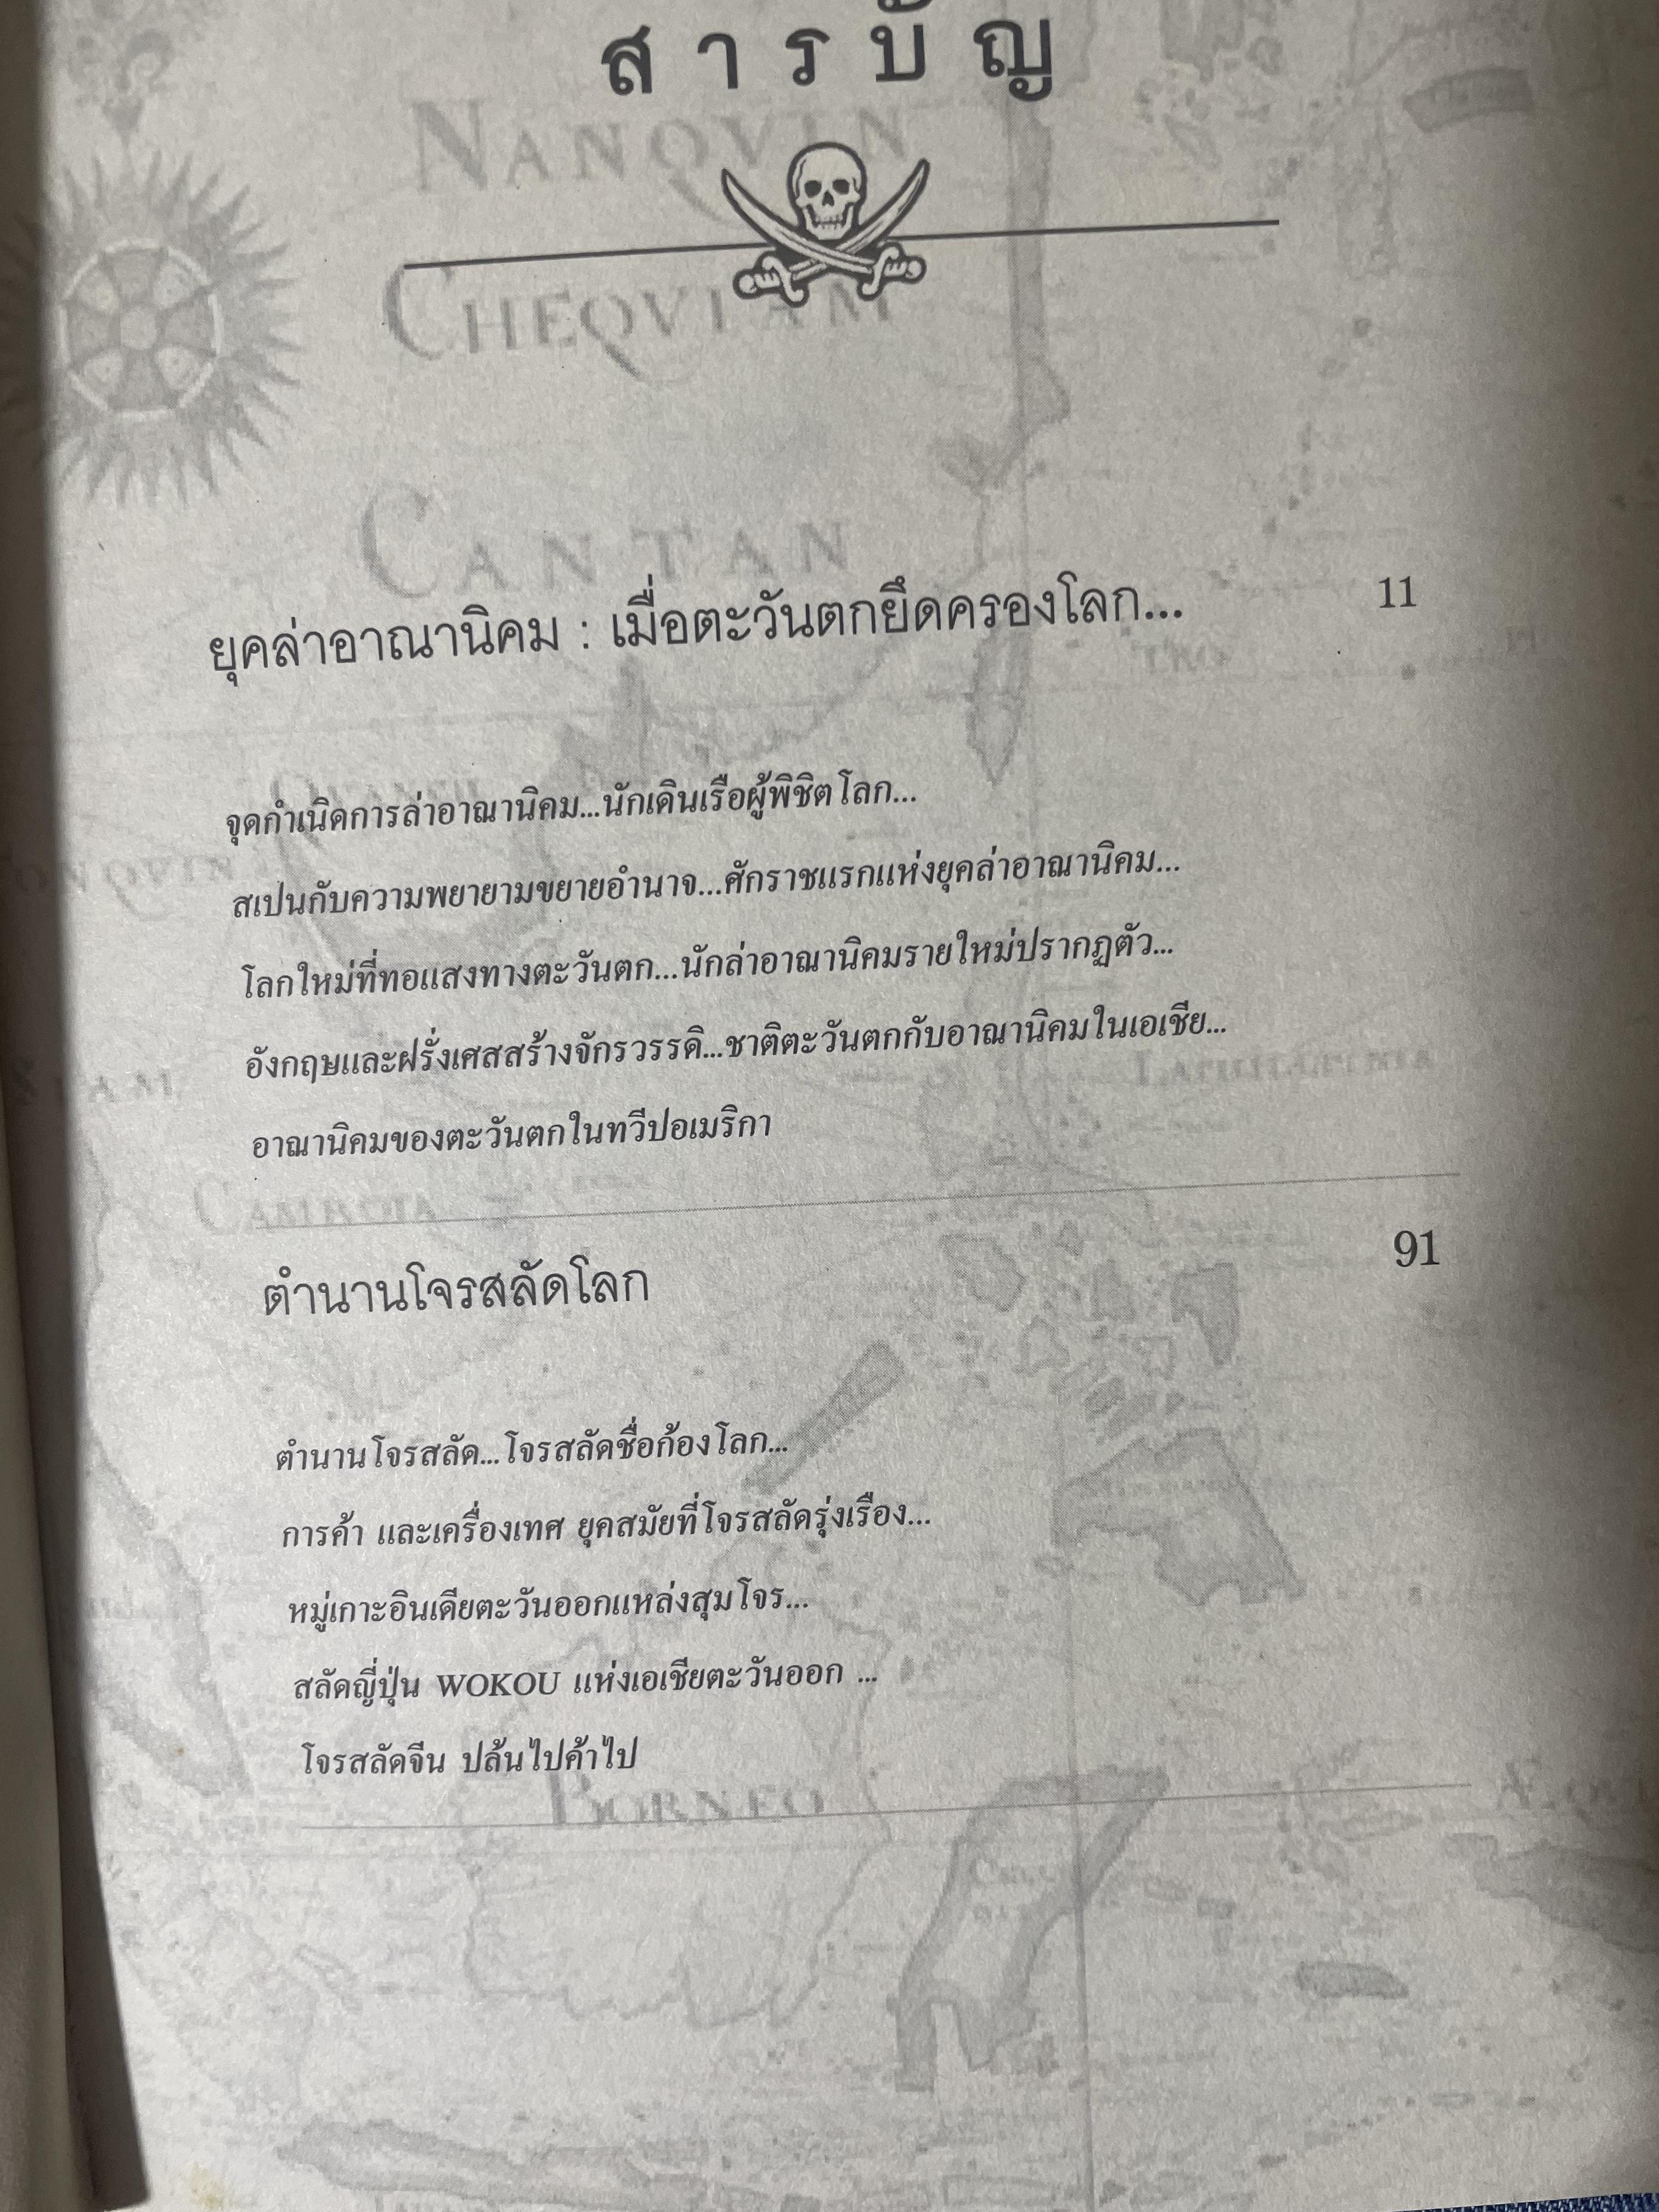 สารบัญ
NANQVIN
CHEQVIAM
CANTAN
ยุคล่าอาณานิคม : เมื่อตะวันตกยึดครองโลก... 11
จุดกำเนิดการล่าอาณานิคม...นักเดินเรือผู้พิชิตโลก...
สเปนกับความพยายามขยายอำนาจ...ศักราชแรกแห่งยุคล่าอาณานิคม...
โลกใหม่ที่ทอแสงทางตะวันตก...นักล่าอาณานิคมรายใหม่ปรากฏตัว...
อังกฤษและฝรั่งเศสสร้างจักรวรรดิ...ชาติตะวันตกกับอาณานิคมในเอเชีย...
อาณานิคมของตะวันตกในทวีปอเมริกา
CAMBOIA
ตำนานโจรสลัดโลก 91
ตำนานโจรสลัด...โจรสลัดชื่อก้องโลก...
การค้า และเครื่องเทศ ยุคสมัยที่โจรสลัดรุ่งเรือง...
หมู่เกาะอินเดียตะวันออกแหล่งสุมโจร...
สลัดญี่ปุ่น WOKOU แห่งเอเชียตะวันออก ...
โจรสลัดจีน ปล้นไปค้าไป
BORNEO